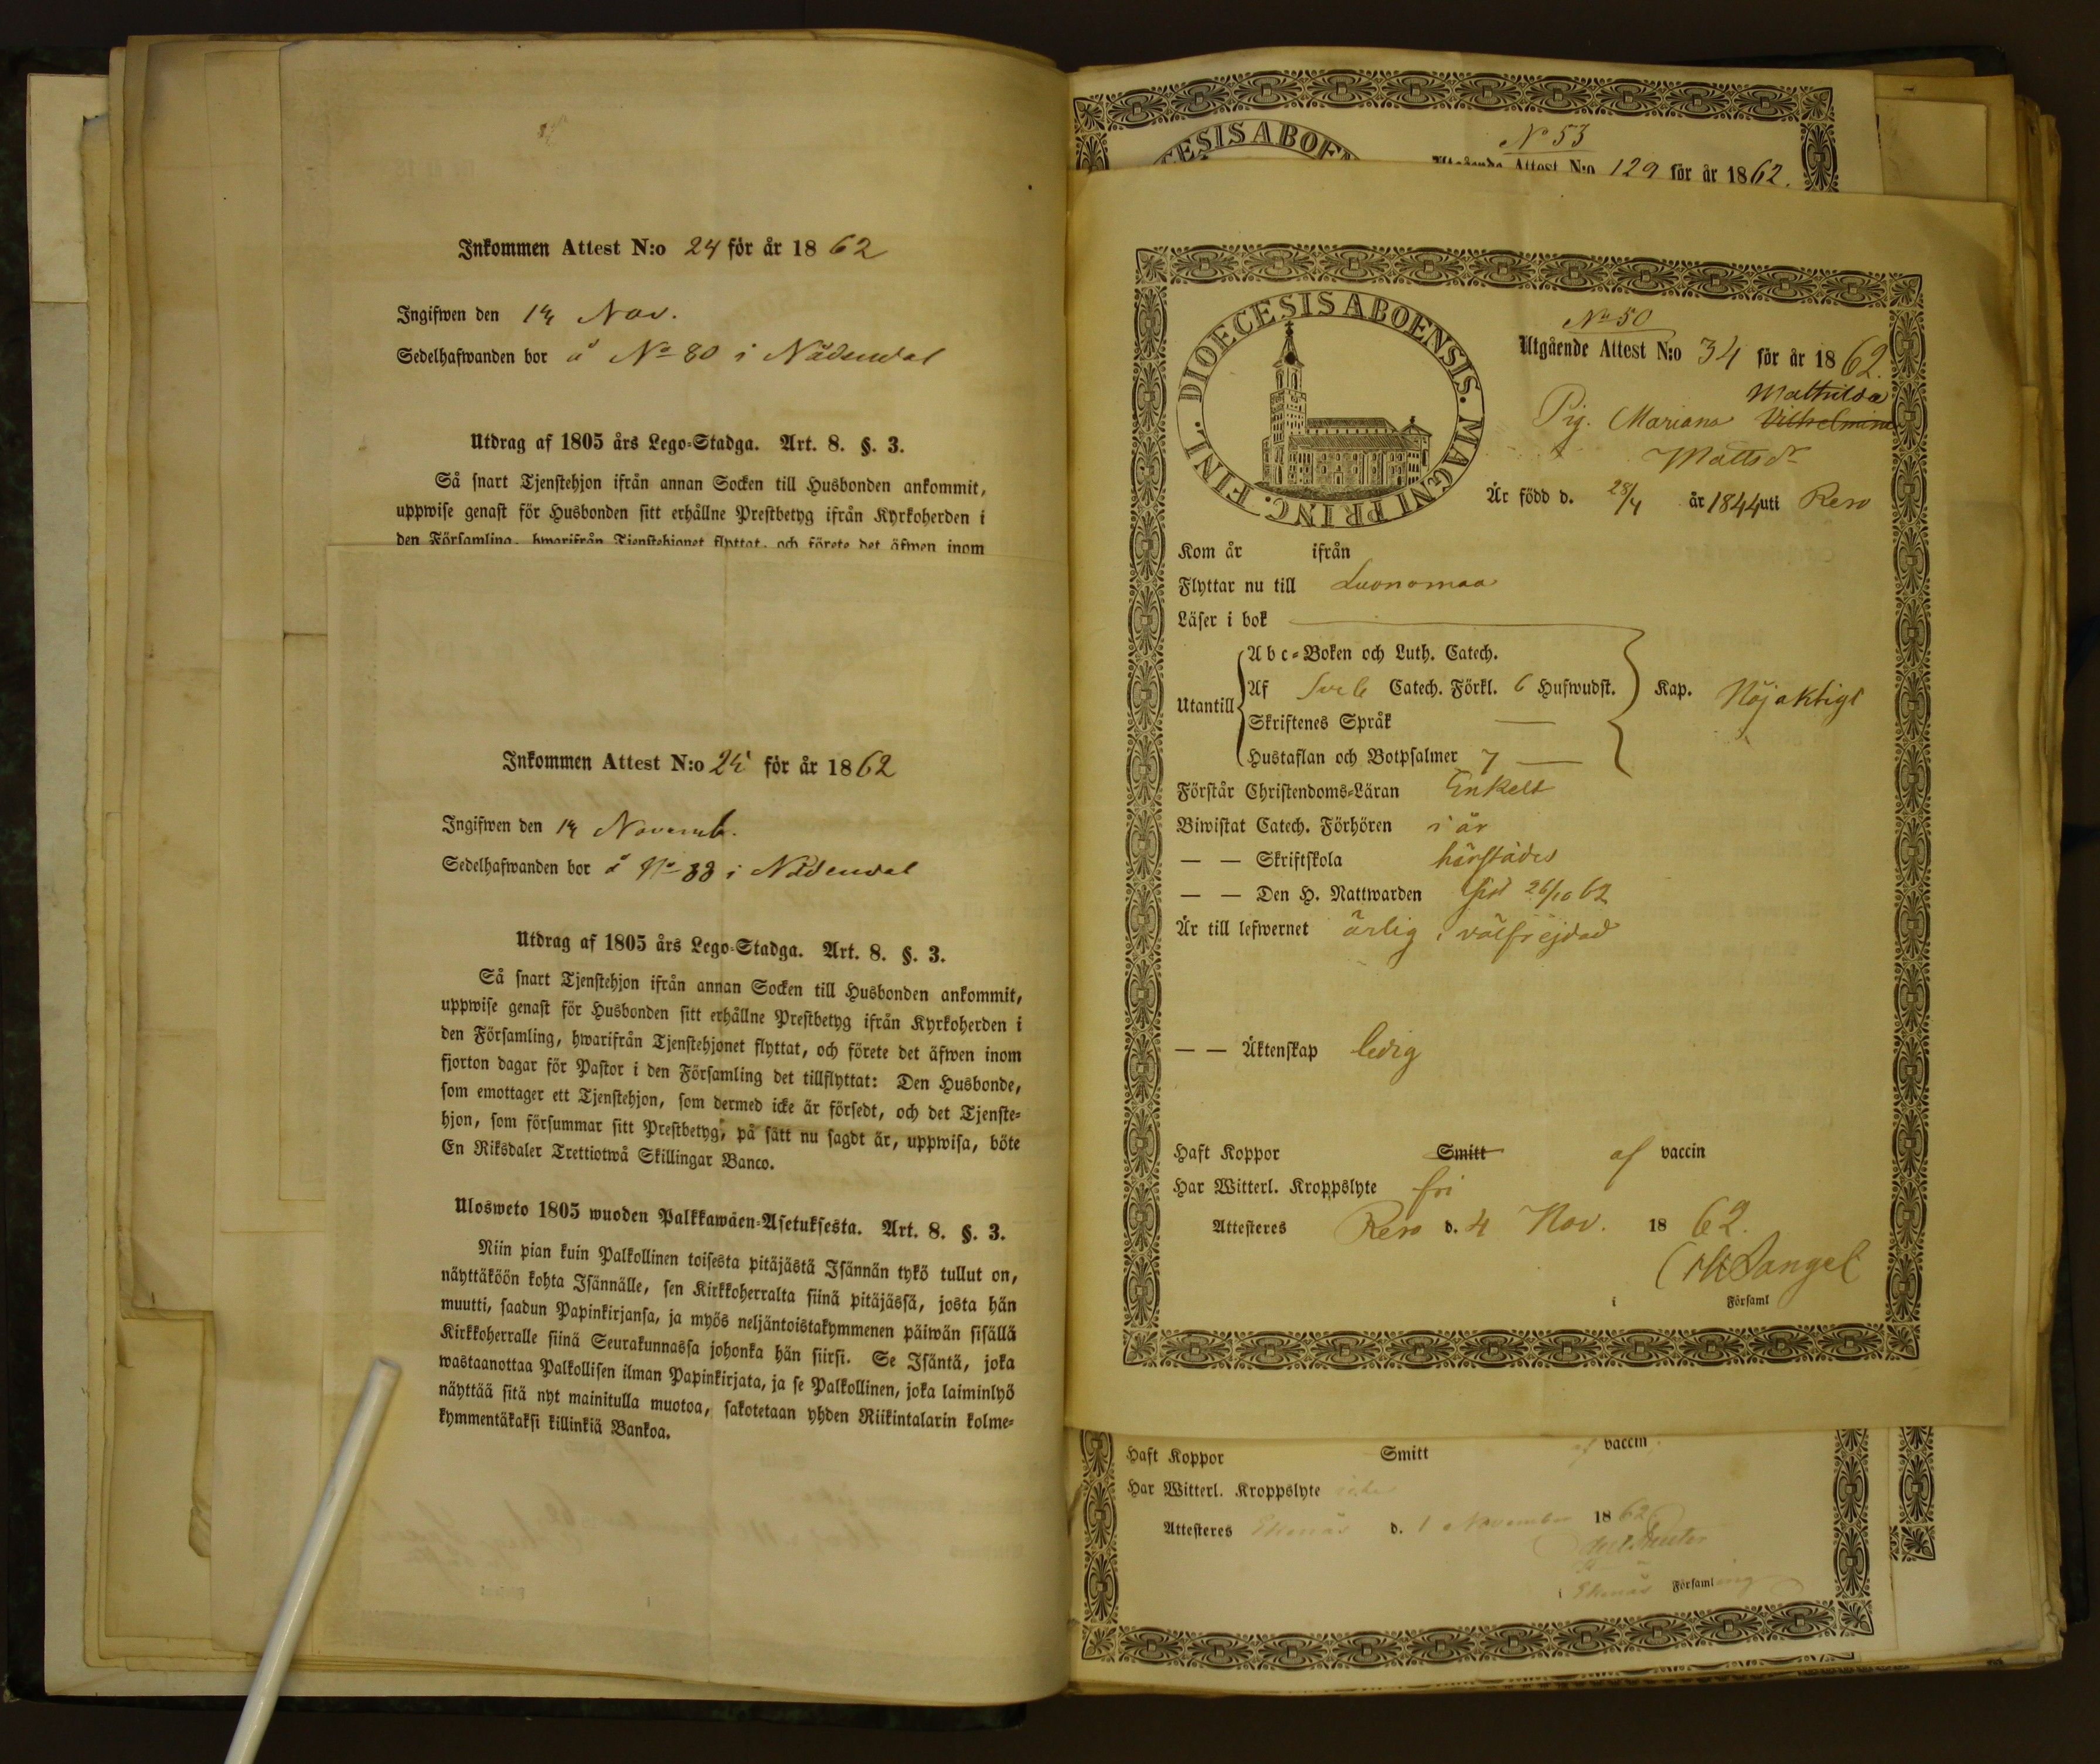 Inkommen Attest N:o 24 för år 1862
Ingifwen den 14 Nov.
Sedelhafwanden bor å No 80 i Nådendal
Utdrag af 1805 års Lego-Stadga. Art. 8. §. 3.
Så snart Tjenstehjon ifrån annan Socken till Husbonden ankommit,
uppwise genast för Husbonden sitt erhållne Prestbetyg ifrån Kyrkoherden i
den Församling, hwarifrån Tjenstehjonet flyttat, och förete det äfwen inom
Inkommen Attest N:o 25 för år 1862
Ingifwen den 14 Novemb.
Sedelhafwanden bor å No 88 i Nådendal
Utdrag af 1805 års Lego-Stadga. Art. 8. §. 3.
Så snart Tjenstehjon ifrån annan Socken till Husbonden ankommit,
uppwise genast för Husbonden sitt erhållne Prestbetyg ifrån Kyrkoherden i
den Församling, hwarifrån Tjenstehjonet flyttat, och förete det äfwen inom
fjorton dagar för Pastor i den Församling det tillflyttat: Den Husbonde,
som emottager ett Tjenstehjon, som dermed icke är försedt, och det Tjenste-
hjon, som försummar sitt Prestbetyg, på sätt nu sagdt är, uppwisa, böte
En Riksdaler Trettiotwå Skillingar Banco.
Ulosweto 1805 wuoden Palkkawäen-Asetuksesta. Art. 8. §. 3.
Niin pian kuin Palkollinen toisesta pitäjästä Isännän tykö tullut on,
näyttäköön kohta Isännälle, sen Kirkkoherralta siinä pitäjässä, josta hän
muutti, saadun Papinkirjansa, ja myös neljäntoistakymmenen päiwän sisällä
Kirkkoherralle siinä Seurakunnassa johonka hän siirsi. Se Isäntä, joka
wastaanottaa Palkollisen ilman Papinkirjata, ja se Palkollinen, joka laiminlyö
näyttää sitä nyt mainitulla muotoa, sakotetaan yhden Riikintalarin kolme-
kymmentäkaksi killinkiä Bankoa.
No 53
Utgående Attest N:o 129 för år 1862.
DIOECESIS ABOENSIS. MAGNI PRINC. FINL.
No 50
Utgående Attest N:o 34 för år 1862.
Mathilda
Pig. Mariana Vilhelmina
Mattsdr
Är född d. 28/4 år 1844 uti Reso
Kom år ifrån
Flyttar nu till Luonomaa
Läser i bok
Utantill
Abc-Boken och Luth. Catech.
Af Catech. Förkl. 6 Hufwudst. Kap. Nöjaktigt
Skriftenes Språk
Hustaflan och Botpsalmer 7
Förstår Christendoms-Läran Enkelt
Biwistat Catech. Förhören i år
— — Skriftskola härstädes
— — Den H. Nattwarden sist 26/10 62
Är till lefwernet ärlig, välfrejdad
— — Äktenskap ledig
Haft Koppor Smitt af vaccin
Har Witterl. Kroppslyte fri
Attesteres Reso d. 4 Nov. 1862.
i Församl
Haft Koppor Smitt af vaccin
Har Witterl. Kroppslyte
Attesteres Ekenäs d. 1 November 1862
i Ekenäs Församling